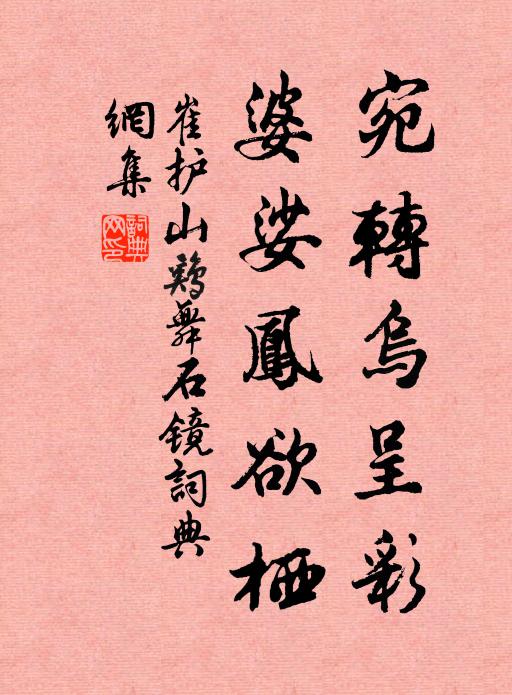 宛轉烏呈彩
婆娑鳳欲栖
崔护山鷄舞石镜詞典
網集
詞典網印